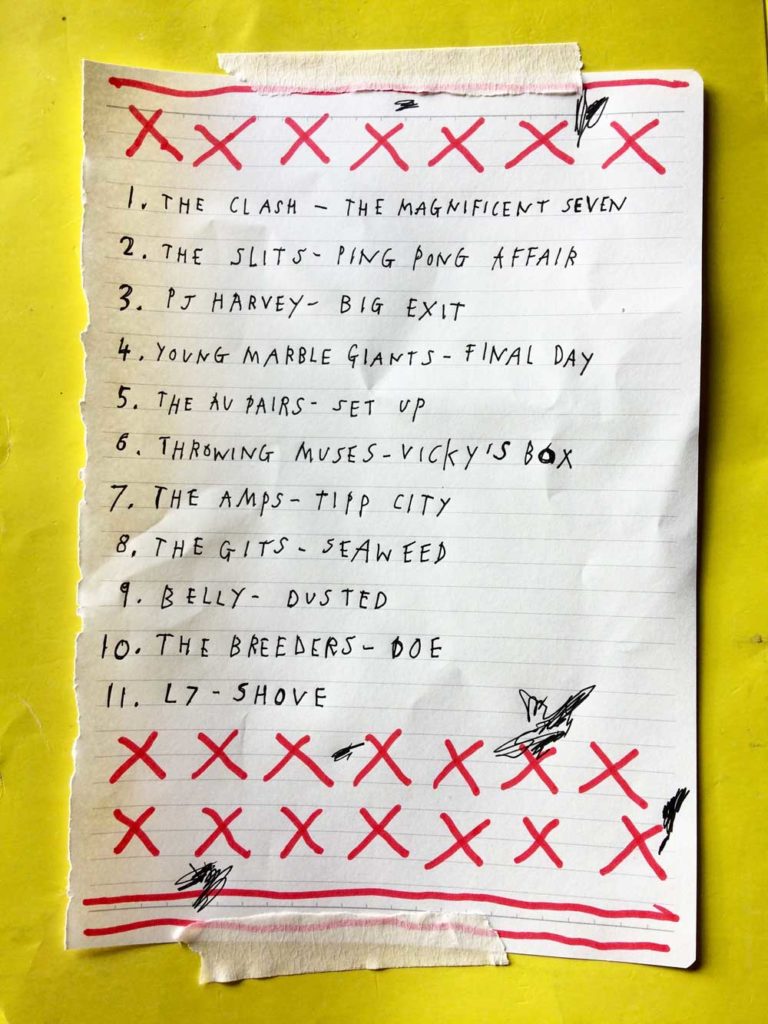 1. THE CLASH - THE MAGNIFICENT SEVEN
2. THE SLITS - PING PONG AFFAIR
3. PJ HARVEY - BIG EXIT
4. YOUNG MARBLE GIANTS - FINAL DAY
5. THE AU PAIRS - SET UP
6. THROWING MUSES - VICKY'S BOX
7. THE AMPS - TIPP CITY
8. THE GITS - SEAWEED
9. BELLY - DUSTED
10. THE BREEDERS - DOE
11. L7 - SHOVE